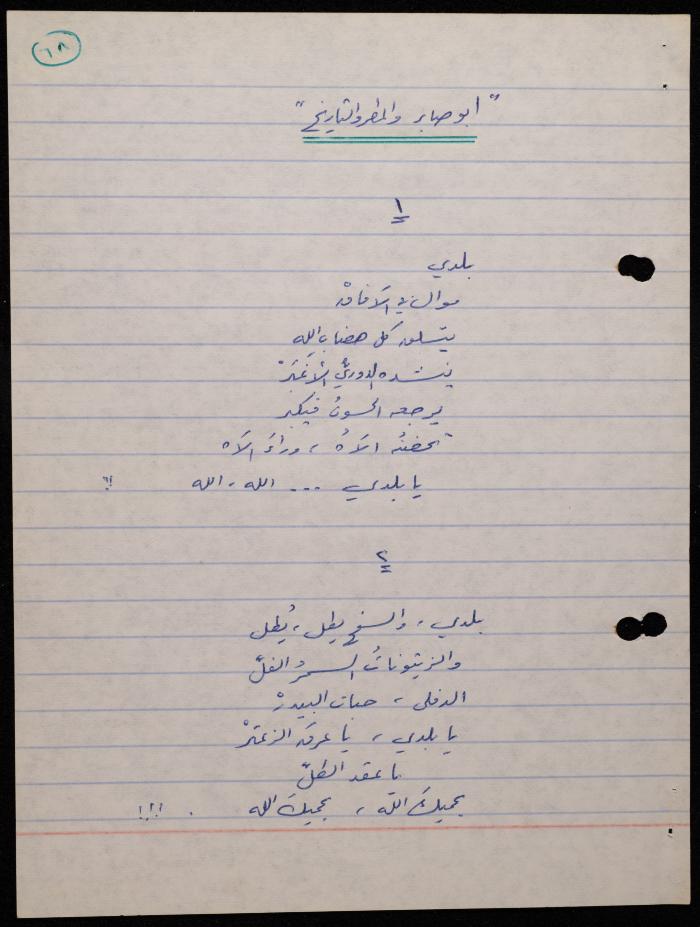 ٦٨
"أبو صابر والمطر والتاريخ"
١
بلدي
موال في الآفاقْ
يتسلق كل هضاب الله
ينشده الدوريُّ الأغبَرْ
يرجعه الحسونُ فيكبر
تحضنُه الآهُ ، وراءَ الآه
يا بلدي ... الله ، الله !؟
٢
بلدي ، والسفح يطل ، يُطل
والزيتوناتُ السمرُ الفلّ
الدفلى ، حبات البيدرْ
يا بلدي ، يا عرق الزعترْ
يا عقد الطلّ
يحميكَ الله ، يحميكَ الله . !!!